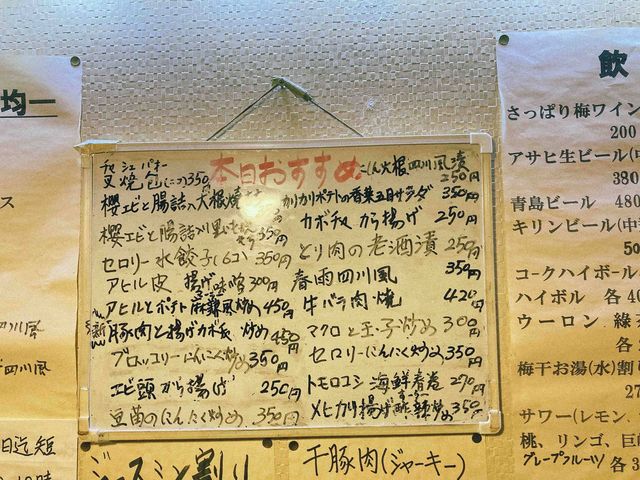 均一
ス
四川風
四川風
日迄短
本日おすすめ
チャーシューパオ
叉焼包(二コ)350
櫻エビと腸詰入大根焼
櫻エビと腸詰入 350円
セロリー水餃子(6コ) 350円
アヒル皮 揚げ 300円
アヒルとポテト麻辣風炒め 450円
豚肉と揚げカボチャ炒め 450円
ブロッコリーにんにく炒め 350円
エビ頭から揚げ 250円
豆苗のにんにく炒め 350円
にん大根四川風漬 250円
カリカリポテトの香菜五目サラダ 350円
カボチャから揚げ 250円
とり肉の老酒漬 250円
春雨四川風 350円
牛バラ肉焼 420円
マグロと玉子炒め 300円
セロリーにんにく炒め 350円
トモロコシ海鮮春巻 270円
メヒカリ揚げ 辣炒め 350円
ジャスミン割り
干豚肉(ジャーキー)
飲
さっぱり梅ワイン
200
アサヒ生ビール(中
380
青島ビール 480
キリンビール(中
50
コークハイボール
ハイボル 各40
ウーロン、緑
各2
梅干お湯(水)割
27
サワー(レモン、
桃、リンゴ、巨
グレープフルーツ 各3